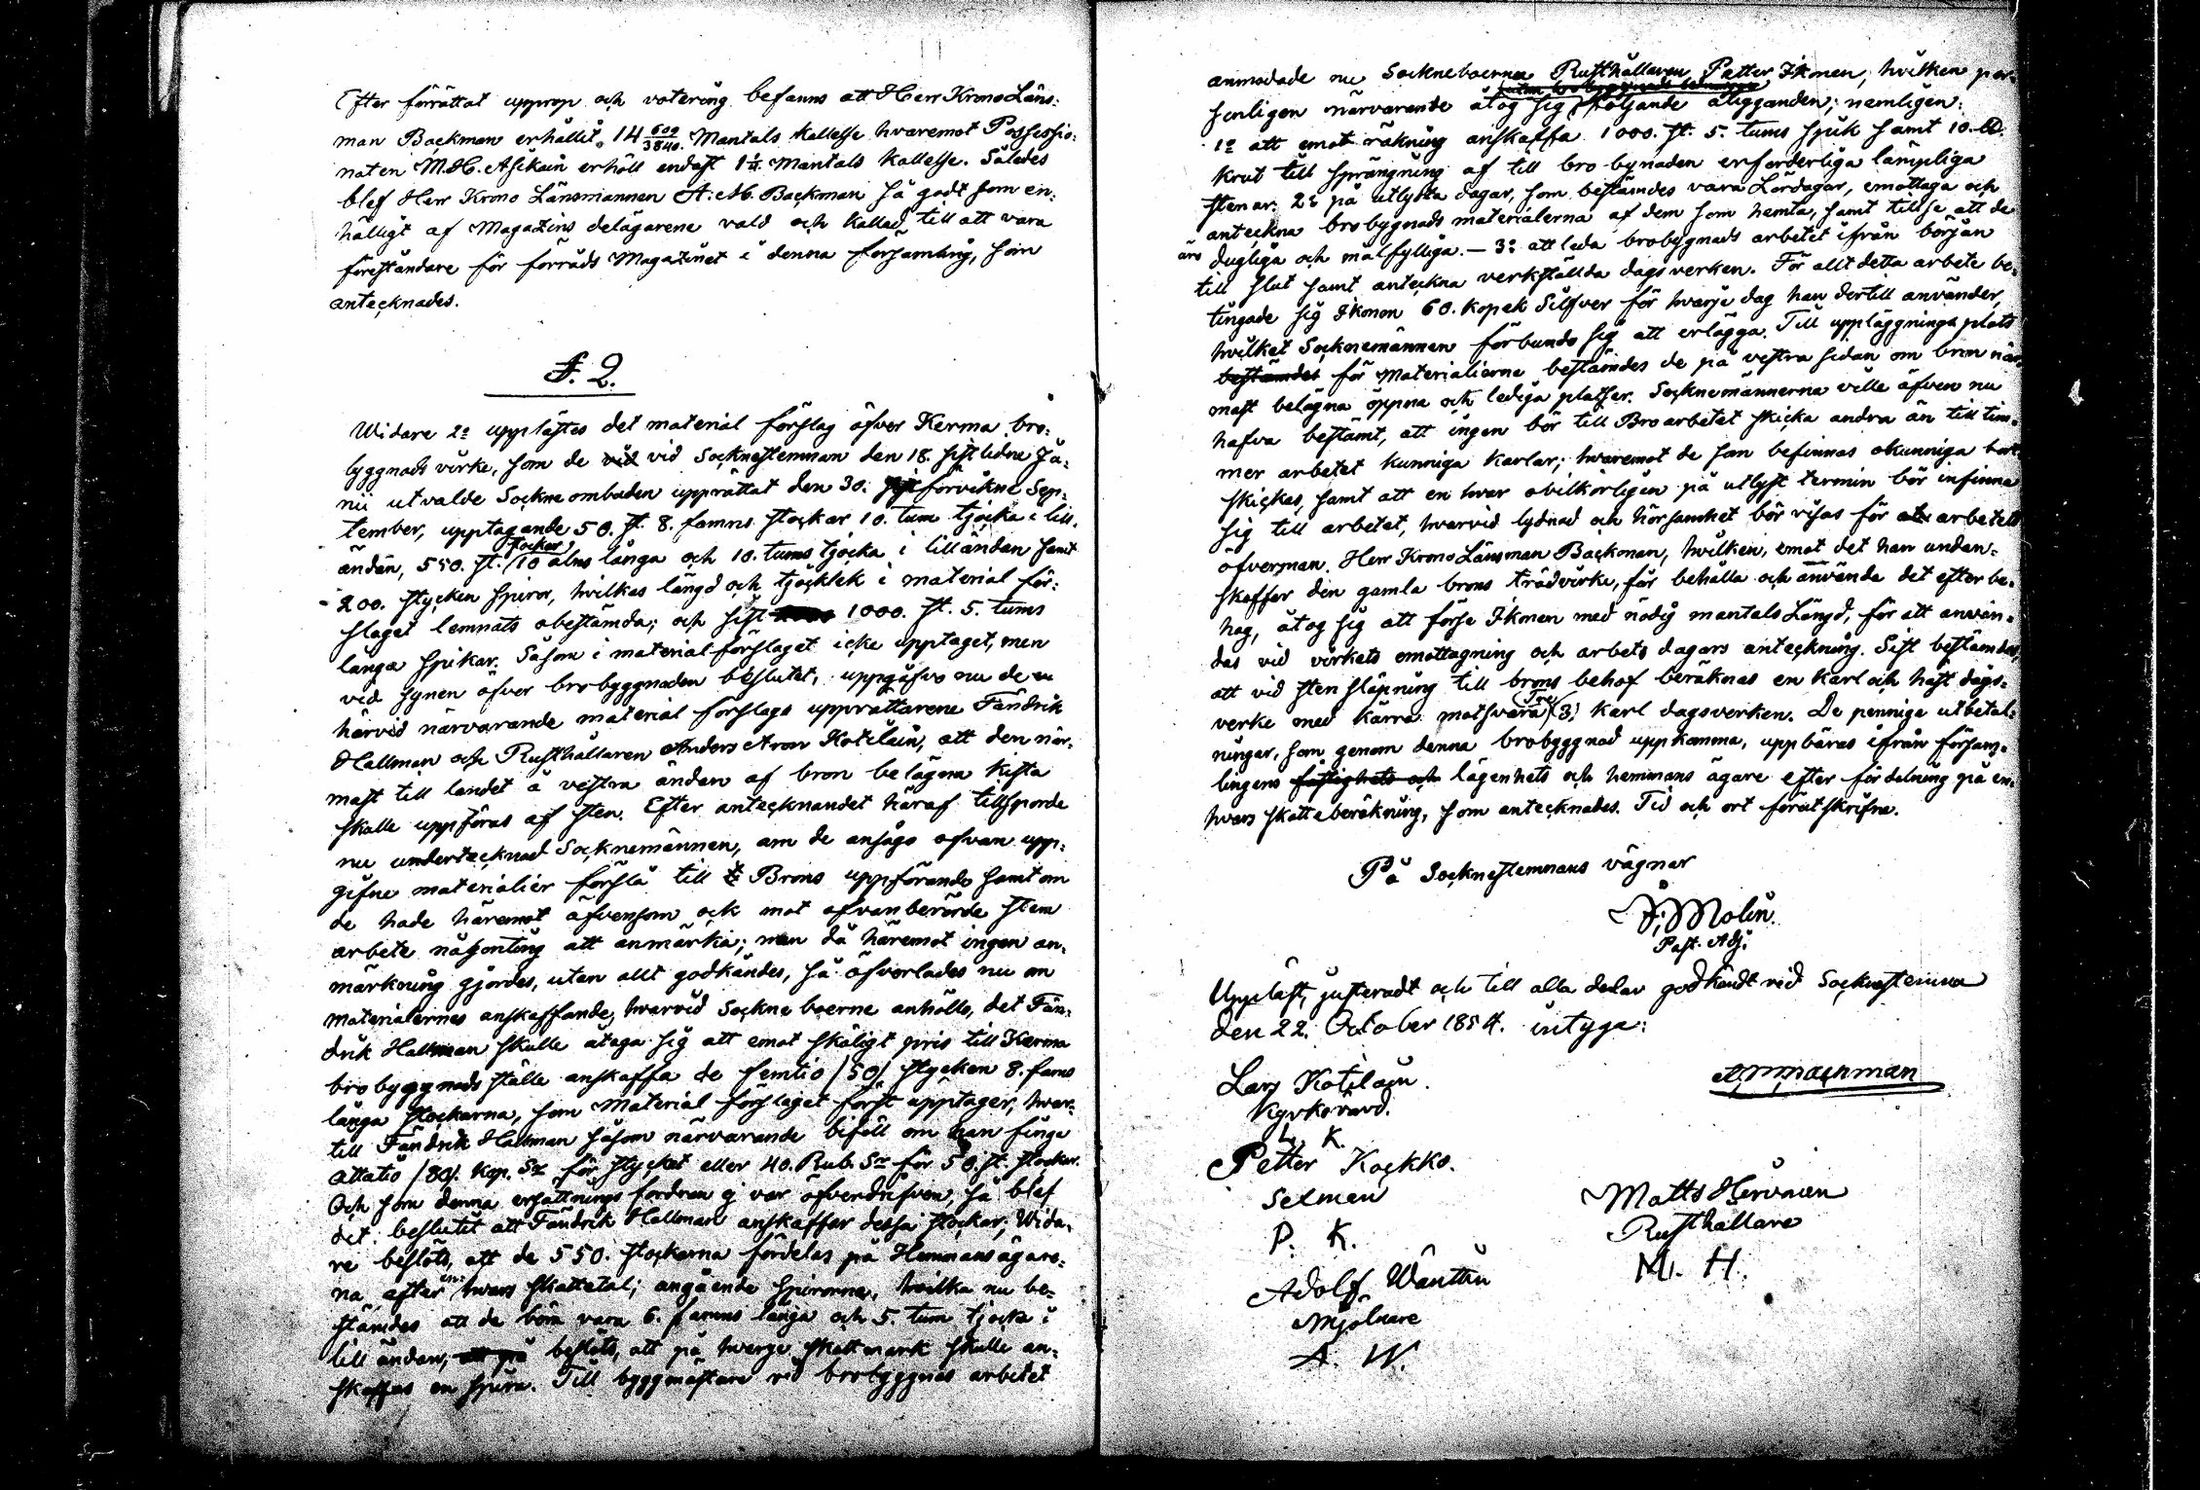 Efter förrättat upprop och votering befanns att Herr Krono Läns-
man Backman erhållit 14 609/3840 Mantals kallelse hvaremot Possessio-
naten M. H. Asikain erhöll endast 1 Mantals kallelse. Således
blef Herr Krono Länsmannen A. M. Backman så godt som en-
hälligt af Magazins delägarene vald och kallad till att vara
föreståndare för förråds Magazinet i denna församling, som
antecknades.
§. 2.
Widare 2o upplästes det material förslag öfver Kerma bro-
byggnads virke, som de vid Sockenstemman den 18. sistlidne Ju-
nii utvalde Sockne ombuden upprättat den 30. förvikne Sep-
tember, upptagande 50. st. 8. famns stockar 10. tum tjocka i lill-
ändan, 550. st. stockar 10 alns långa och 10. tums tjocka i lilländan samt
200. stycken spiror, hvilkas längd och tjocklek i material för-
slaget lemnats obestämda; och sist 1000. st. 5. tums
langa spikar. Såsom i material förslaget icke upptaget, men
vid synen öfver brobyggnaden beslutet, uppgåfvo nu de
härvid närvarande material förslags upprättarene Fändrik
Hallman och Rusthållaren Anders Aron Kotilain, att den när-
mast till landet å vestra ändan af bron belägna kista
skulle uppföras af sten. Efter antecknandet häraf tillsporde
nu undertecknad Socknemännen, om de ansågo ofvan upp-
gifne materialier förslå till Brons uppförande samt om
de hade häremot äfvensom ock mot ofvanberörde sten
arbete någonting att anmärka; men då häremot ingen an-
märkning gjordes, utan allt godkändes, så öfverlades nu om
materialernes anskaffande, hvarvid Sockneboerne anhöllo, det Fän-
drik Hallman skulle åtaga sig att emot skäligt pris till Kerma
brobyggnads ställe anskaffa de femtio /50/ stycken 8. famns
långa stockarna, som Material förslaget först upptager, hvar-
till Fändrik Hallman såsom närvarande biföll om han finge
åttatio /80/. kop. Sr för stycket eller 40. Rub. Sr för 50. st. stockar.
Och som denna ersättnings fordran ej var öfverdrifven, så blef
det beslutet att Fändrik Hallman anskaffar dessa stockar; Wida-
re beslöts, att de 550. stockarna fördelas på Hemmansägare-
na efter en hvars skattetal; angående spirorna, hvilka nu be-
stämdes att de böra vara 6. famns långa och 5. tum tjocka i
lilländan, beslöts, att på hvarje skattmark skulle an-
skaffas en spira. Till byggmästare vid brobyggnads arbetet
anmodade nu Sockneboerna Rusthållaren Petter Ikonen, hvilken per-
sonligen närvarande åtog sig följande åligganden; nemligen:
1o att emot räkning anskaffa 1000. st. 5. tums spik samt 10. ℔.
krut till sprängning af till bro bynaden erforderliga lämpliga
stenar: 2o på utlysta dagar, som bestämdes vara Lördagar, emottaga och
anteckna brobyggnads materialerna af dem som hemta, samt tillse att de
äro dugliga och målfylliga. — 3o att leda brobygnads arbetet ifrån början
till slut samt anteckna verkställda dagsverken. För allt detta arbete be-
tingade sig Ikonen 60. kopek Silfver för hvarje dag han dertill använder,
hvilket Socknemännen förbundo sig att erlägga. Till uppläggnings plats
för Materialierna bestämdes de på vestra sidan om bron när-
mast belägna öppna och lediga platser. Socknemännerna ville äfven nu
hafva bestämt, att ingen bör till Bro arbetet skicka andra än till tim-
mer arbetet kunniga karlar; hvaremot de som befinnas okunniga bort
skickas, samt att en hvar obilkorligen på utlyst termin bör infinna
sig till arbetet, hvarvid lydnad och hörsamhet bör visas för arbetets
öfverman. Herr Krono Länsman Backman, hvilken, emot det han undan-
skaffer den gamla brons trädvirke, får behålla och använde det efter be-
hag, åtog sig att förse Ikonen med nödig mantals Längd, för att använ-
das vid virkets emottagning och arbets dagars anteckning. Sist bestämdes,
att vid stensläpning till brons behof beräknas en karl och häst dags-
verke med kärra motsvara Tre (3) karl dagsverken. De penninga utbetal-
ningar, som genom denna brobyggnad uppkomma, uppbäras ifrån försam-
lingens lägenhets och hemmans ägare efter fördelning på en-
hvars skatteberäkning, som antecknades. Tid och ort förutskrifne.
På Socknestemmans vägnar
F. Molin.
Past. Adj.
Uppläst, justeradt och till alla delar godkändt vid Socknestemma
den 22. October 1854. intyga:
Lars Kotilain.
Kyrkovärd.
L. K.
A M Backman
Petter Kockko.
Sexmen
P. K.
Matts Hirvonen
Rusthållare
M. H.
Adolf Wäntin
Mjölnare
A. W.